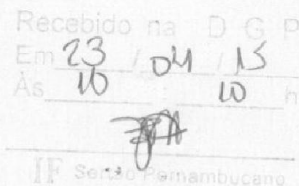 Recebido na D G P
Em 23 / 04 / 15
Às 10 10 h
IF Sertão Pernambucano